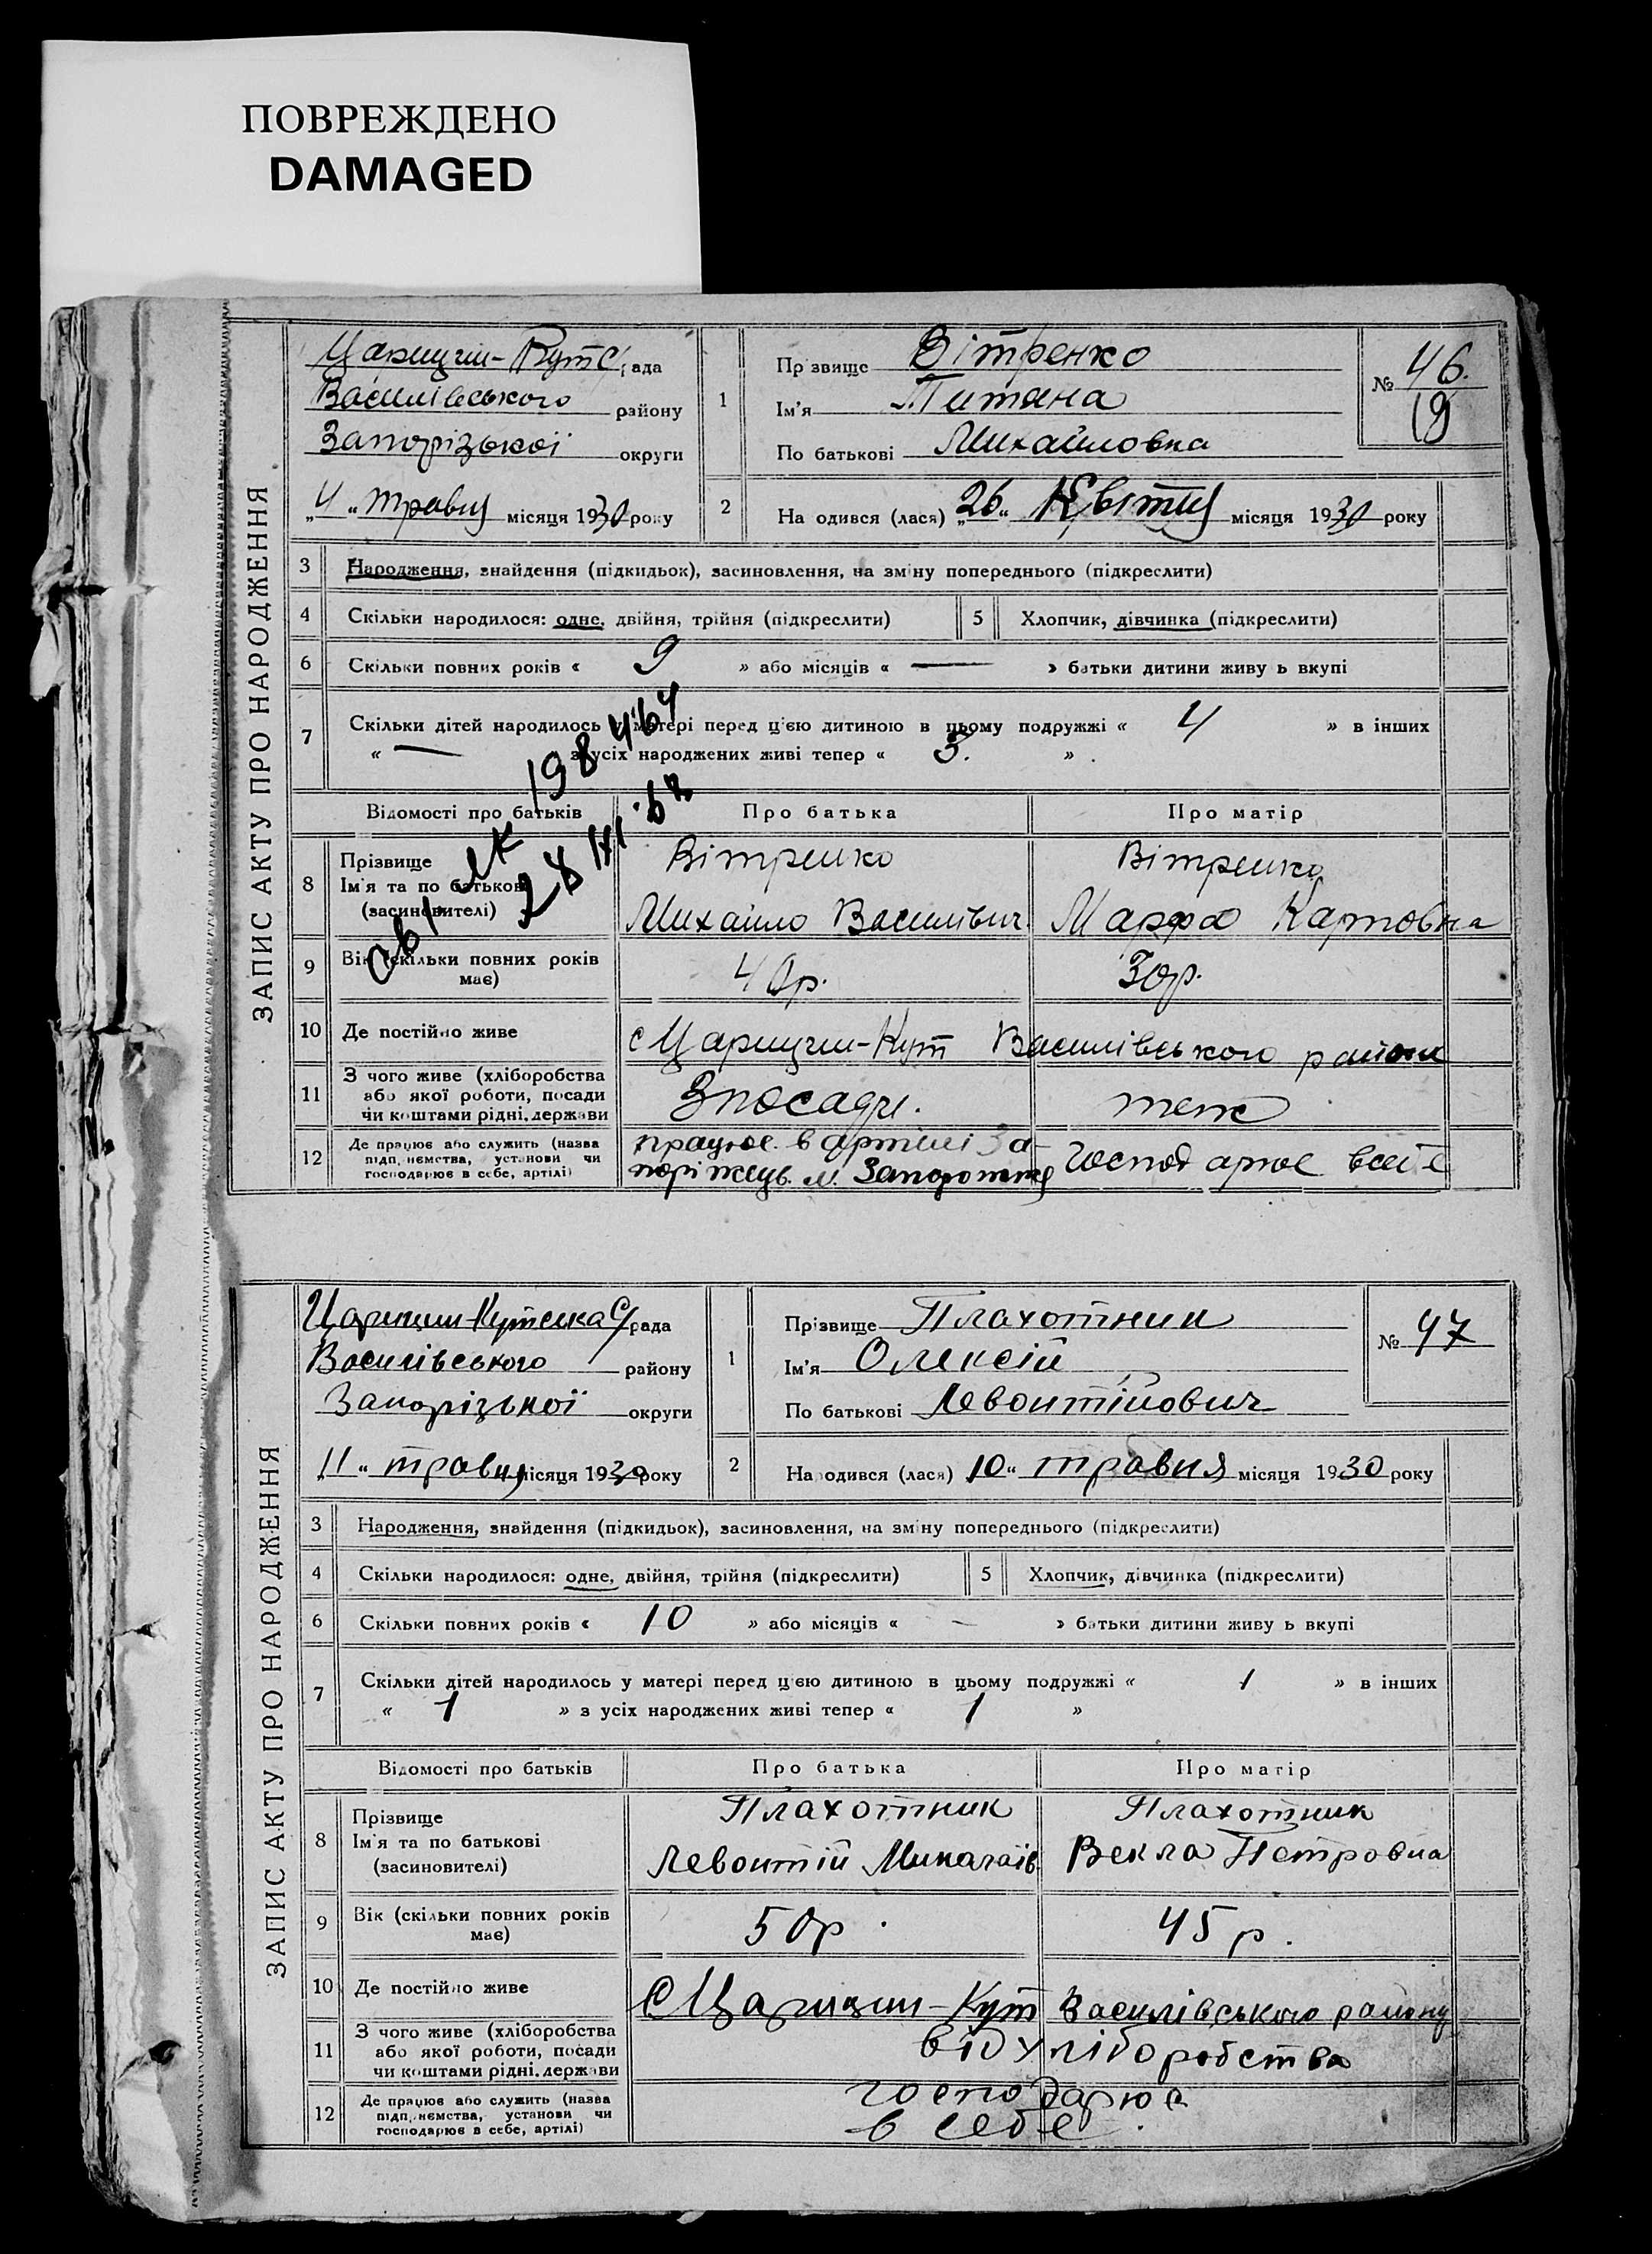 ПОВРЕЖДЕНО
DAMAGED
ЗАПИС АКТУ ПРО НАРОДЖЕННЯ
Царицин-Кутс рада
Василівського району
Запорізької округи
„4“ травня місяця 1930 року
1
Прізвище Вітренко
Ім'я Титяна
По батькові Михайловна
№ 46.
19
2
Народився (лася) „26“ Квітня місяця 1930 року
3 Народження, знайдення (підкидьок), засиновлення, на зміну попереднього (підкреслити)
4 Скільки народилося: одне, двійня, трійня (підкреслити) 5 Хлопчик, дівчинка (підкреслити)
6 Скільки повних років « 9 » або місяців « — » батьки дитини живуть вкупі
7 Скільки дітей народилось у матері перед цією дитиною в цьому подружжі « 4 » в інших
« — з усіх народжених живі тепер « 3. » .
198464
28
Відомості про батьків Про батька Про матір
8 Прізвище Вітренко Вітренко
Ім'я та по батькові
(засиновителі) Михайло Василівич Марфа Карповна
9 Вік (скільки повних років має) 40р. 30р.
10 Де постійно живе с Царицин-Кут Василівського району
11 З чого живе (хліборобства
або якої роботи, посади
чи коштами рідні, держави Зпосади. теж
12 Де працює або служить (назва
підприємства, установи чи
господарює в себе, артілі) працює в артілі За-
поріжець м. Запоріжжя господарює всебе
ЗАПИС АКТУ ПРО НАРОДЖЕННЯ
Царицин-Кутська С/рада
Василівського району
Запорізької округи
„11“ травня місяця 1930 року
1
Прізвище Плахотник
Ім'я Олексій
По батькові Левонтійович
№ 47
2
Народився (лася) 10“ травня місяця 1930 року
3 Народження, знайдення (підкидьок), засиновлення, на зміну попереднього (підкреслити)
4 Скільки народилося: одне, двійня, трійня (підкреслити) 5 Хлопчик, дівчинка (підкреслити)
6 Скільки повних років « 10 » або місяців « — » батьки дитини живуть вкупі
7 Скільки дітей народилось у матері перед цією дитиною в цьому подружжі « 1 » в інших
« 1 » з усіх народжених живі тепер « 1 »
Відомості про батьків Про батька Про матір
8 Прізвище Плахотник Плахотник
Ім'я та по батькові
(засиновителі) Левонтій Миколаїв Векла Петровна
9 Вік (скільки повних років має) 50р. 45р.
10 Де постійно живе С Царицин-Кут Василівського району
11 З чого живе (хліборобства
або якої роботи, посади
чи коштами рідні, держави від хліборобства
12 Де працює або служить (назва
підприємства, установи чи
господарює в себе, артілі) господарює
в себе.